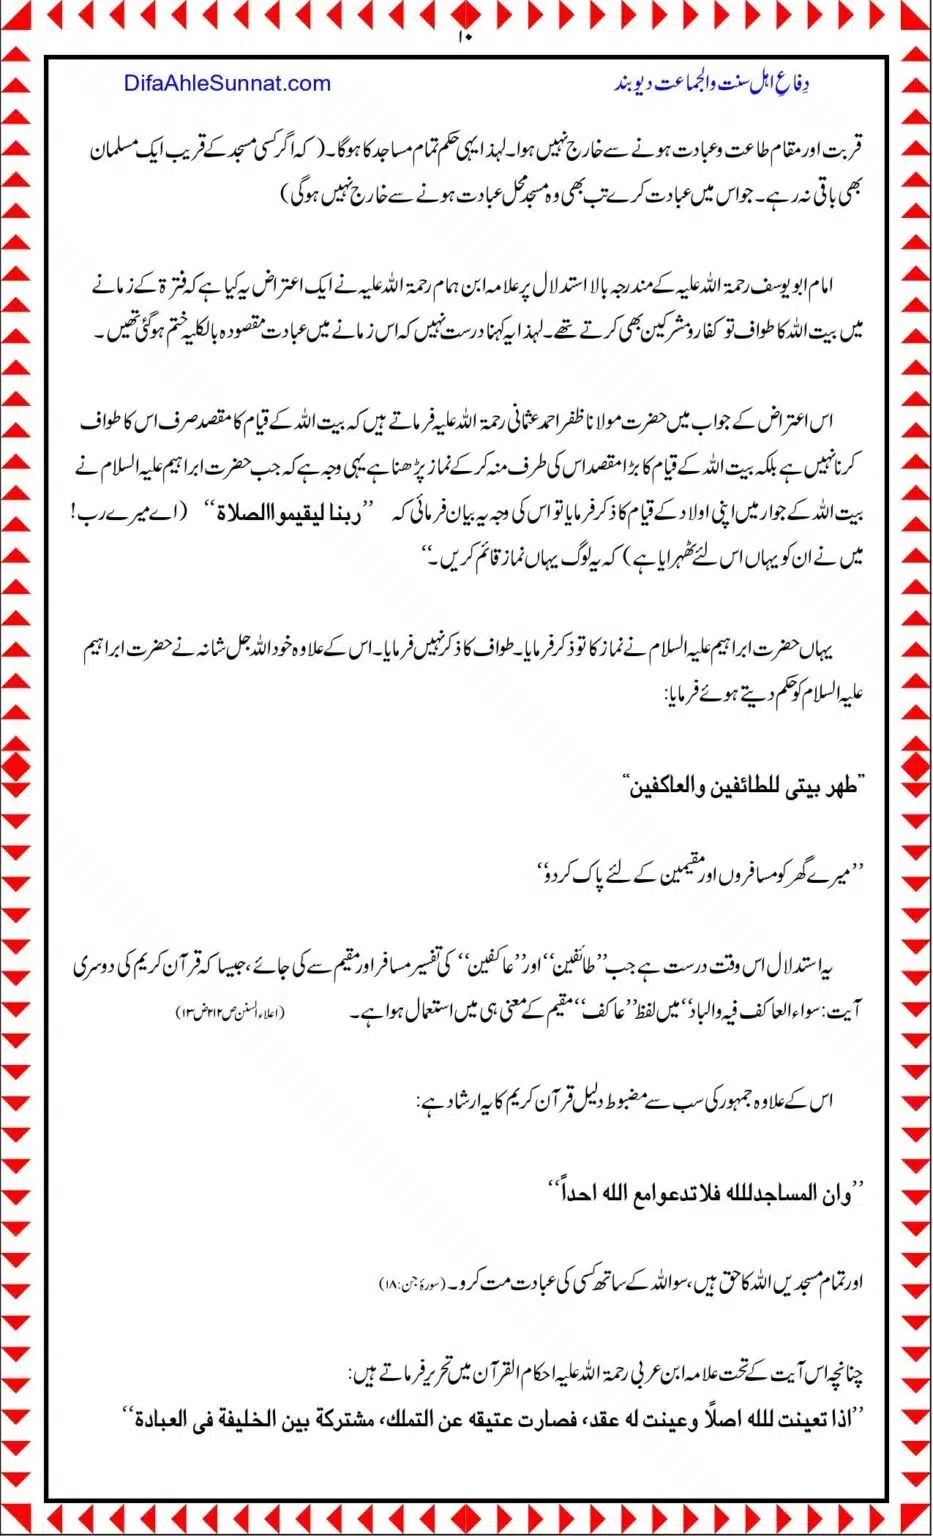 ۱۰
دِفاعِ اہل سنت والجماعت دیوبند DifaAhleSunnat.com
قربت اور مقام طاعت وعبادت ہونے سے خارج نہیں ہوا۔ لہٰذا یہی حکم تمام مساجد کا ہوگا۔ ( کہ اگر کسی مسجد کے قریب ایک مسلمان
بھی باقی نہ رہے۔ جو اس میں عبادت کرے تب بھی وہ مسجد محل عبادت ہونے سے خارج نہیں ہوگی)
امام ابو یوسف رحمۃ اللہ علیہ کے مندرجہ بالا استدلال پر علامہ ابن ہمام رحمۃ اللہ علیہ نے ایک اعتراض یہ کیا ہے کہ فترۃ کے زمانے
میں بیت اللہ کا طواف تو کفار و مشرکین بھی کرتے تھے۔ لہٰذا یہ کہنا درست نہیں کہ اس زمانے میں عبادت مقصودہ بالکلیہ ختم ہوگئی تھیں ۔
اس اعتراض کے جواب میں حضرت مولانا ظفر احمد عثمانی رحمۃ اللہ علیہ فرماتے ہیں کہ بیت اللہ کے قیام کا مقصد صرف اس کا طواف
کرنا نہیں ہے بلکہ بیت اللہ کے قیام کا بڑا مقصد اس کی طرف منہ کر کے نماز پڑھنا ہے یہی وجہ ہے کہ جب حضرت ابراہیم علیہ السلام نے
بیت اللہ کے جوار میں اپنی اولاد کے قیام کا ذکر فرمایا تو اس کی وجہ یہ بیان فرمائی کہ ’’ربنا ليقيموا الصلاة‘‘ (اے میرے رب!
میں نے ان کو یہاں اس لئے ٹھہرایا ہے) کہ یہ لوگ یہاں نماز قائم کریں ۔‘‘
یہاں حضرت ابراہیم علیہ السلام نے نماز کا تو ذکر فرمایا۔ طواف کا ذکر نہیں فرمایا۔ اس کے علاوہ خود اللہ جل شانہ نے حضرت ابراہیم
علیہ السلام کو حکم دیتے ہوئے فرمایا:
”طهر بيتى للطائفين والعاكفين“
’’میرے گھر کو مسافروں اور مقیمین کے لئے پاک کردو‘‘
یہ استدلال اس وقت درست ہے جب’’طائفین‘‘ اور’’عاکفین‘‘ کی تفسیر مسافر اور مقیم سے کی جائے، جیسا کہ قرآن کریم کی دوسری
آیت: سواء العاکف فیہ والباد‘‘ میں لفظ’’عاکف‘‘ مقیم کے معنی ہی میں استعمال ہوا ہے۔ (اعلاء السنن ص۲۱۲ ض۱۳)
اس کے علاوہ جمہور کی سب سے مضبوط دلیل قرآن کریم کا یہ ارشاد ہے:
’’وان المساجدلله فلا تدعوا مع الله احداً‘‘
اور تمام مسجدیں اللہ کا حق ہیں، سو اللہ کے ساتھ کسی کی عبادت مت کرو۔ (سورۂ جن: ۱۸)
چنانچہ اس آیت کے تحت علامہ ابن عربی رحمۃ اللہ علیہ احکام القرآن میں تحریر فرماتے ہیں:
’’اذا تعينت لله اصلًا وعينت له عقد، فصارت عتيقه عن التملك، مشتركة بين الخليفة فى العبادة‘‘